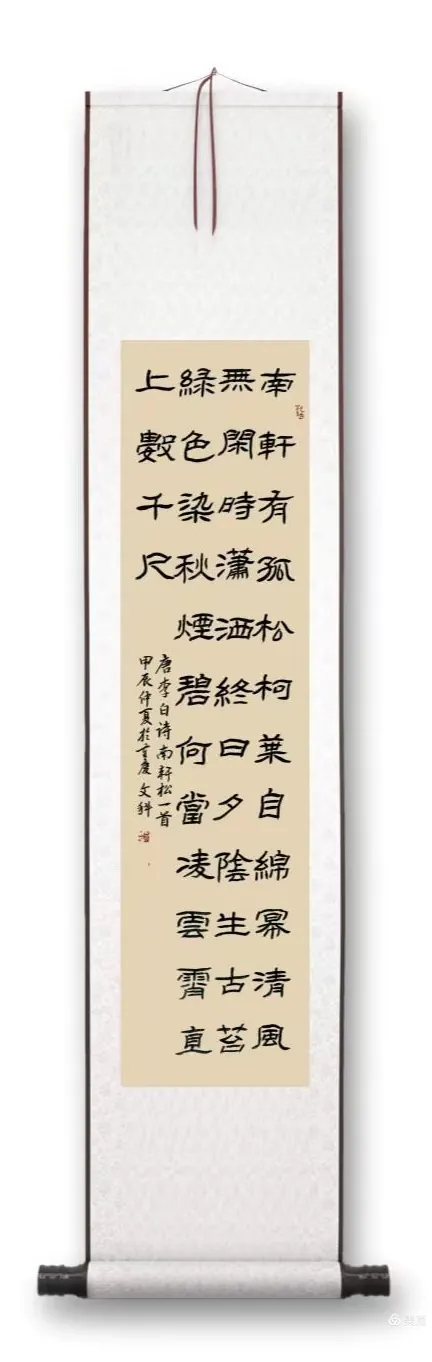 南軒有孤松柯葉自綿冪清風
無閑時瀟洒終日夕陰生古苔
緑色染秋煙碧何當凌雲霄直
上數千尺
唐李白诗南軒松一首
甲辰仲夏於重庆文科